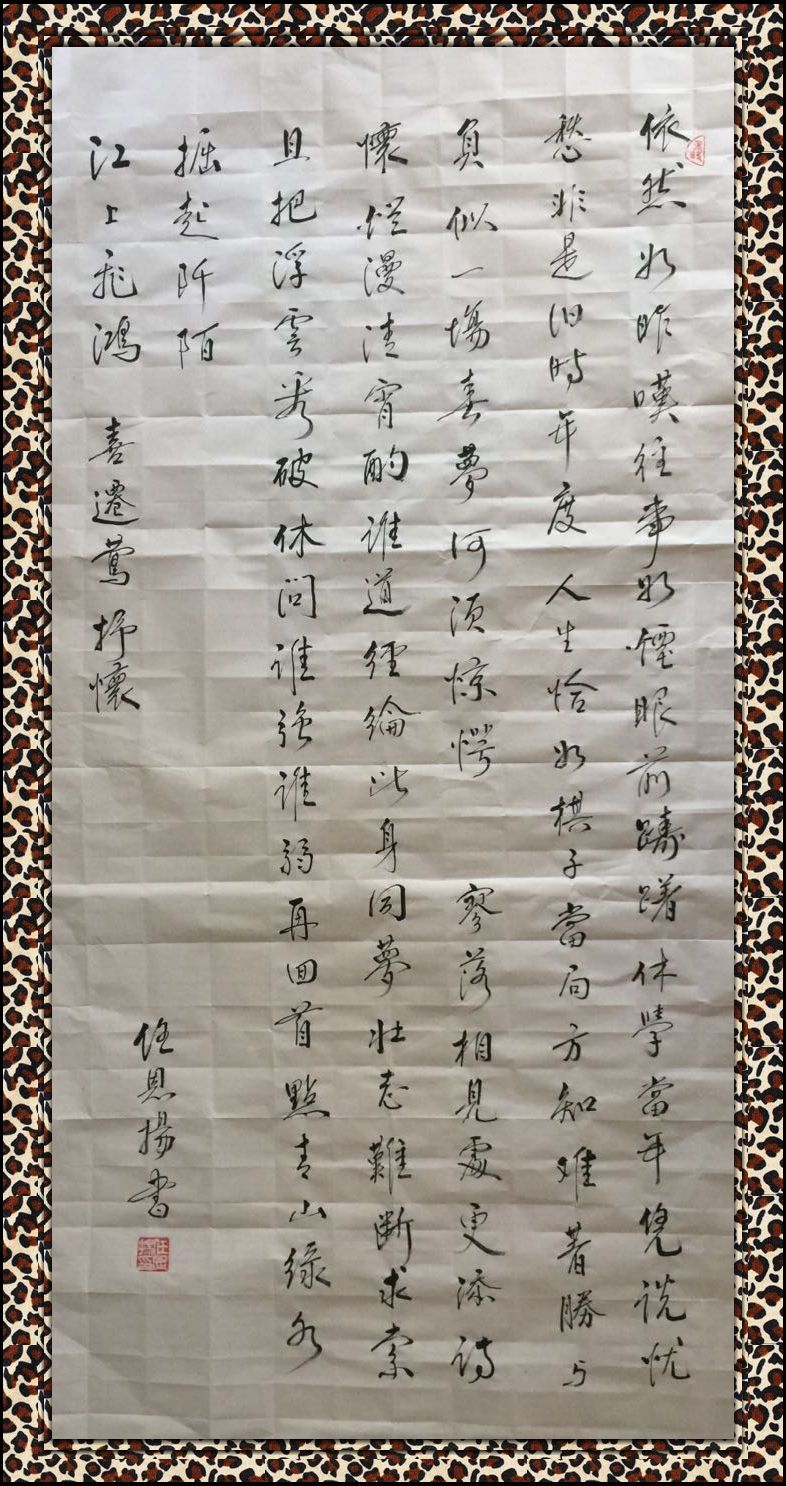 依然如昨嘆往事如煙眼前躊躇休學當年凭说忧
愁非是旧時年度人生恰如棋子當局方知难著勝与
負似一場春夢何须惊愕 寥落相見處更添诗
懷烂漫清宵酌谁道經綸此身同夢壮志難断求索
且把浮雲看破休问谁強谁弱再回首點青山绿水
掘起阡陌
江上飛鴻 喜遷鶯抒懷
任恩揚書